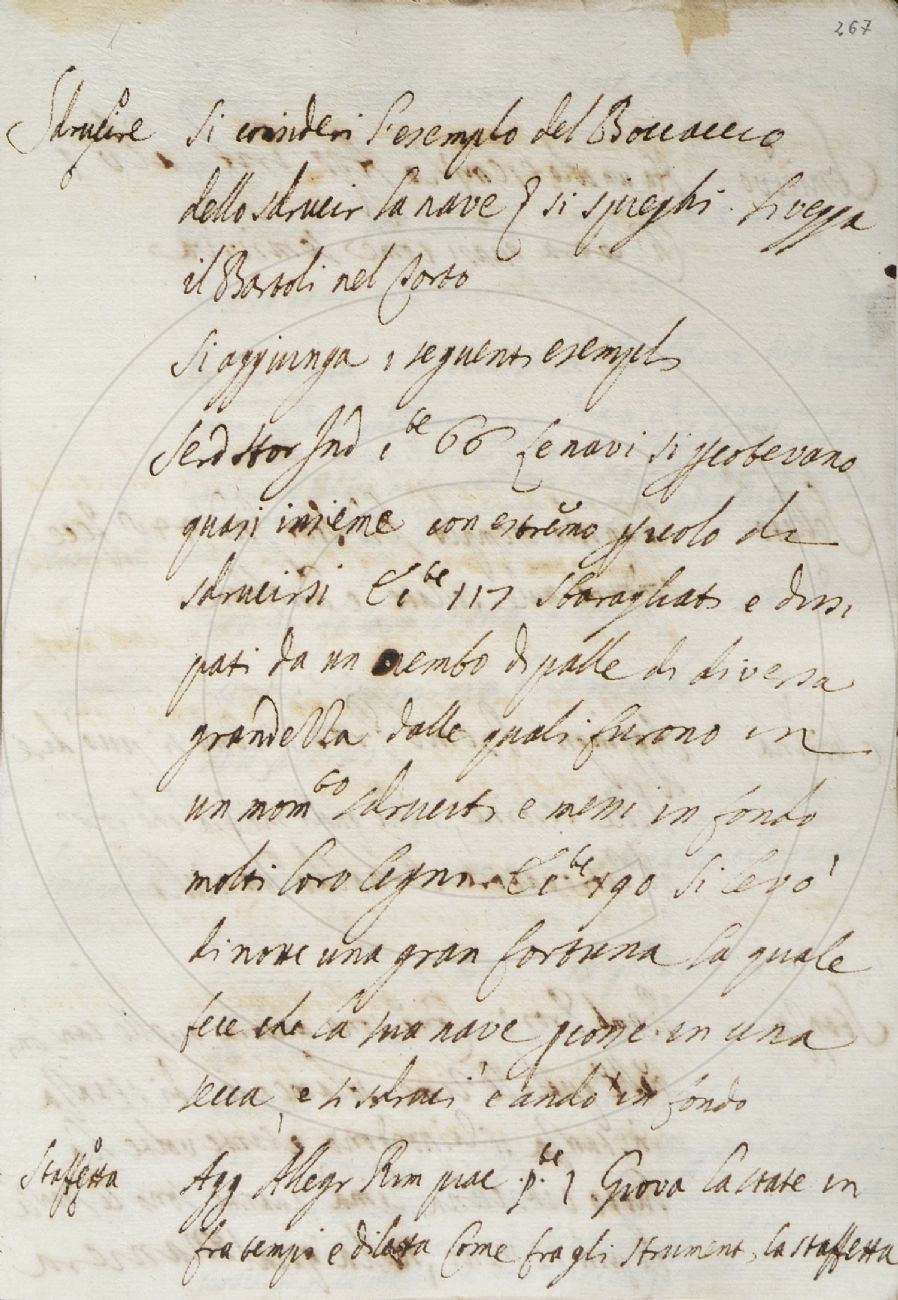 267
Sdrucire Si consideri l'esempio del Boccaccio
dello sdrucir la nave e si spieghi. Si vegga
il Bartoli nel Torto
Si aggiunga i seguenti esempli
Serd Stor Ind 66 Le navi si percotevano
quasi insieme con estremo pericolo di
sdrucirsi E 117 Sbaragliati e dissi
pati da un nembo di palle di diversa
grandezza dalle quali furono in
un momto sdruciti e messi in fondo
molti loro legni. E 190 Si levò
di notte una gran fortuna la quale
fece che la sua nave percosse in una
secca, e si sdrucì e andò in fondo
Staffetta Agg Allegr Rim piac 1 Giova la state in
fra tempi e diletta Come fra gli strumenti la staffetta